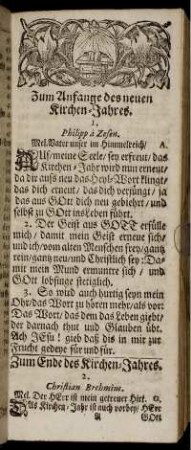 Zum Anfange des neuen
Kirchen-Jahres.
1.
Philipp à Zesen.
Mel. Vater unser im Himmelreich/ A.
AUf/ meine Seele/ sey erfreut/ das
Kirchen-Jahr wird nun erneut/
da dir aufs neu das Hosp-Wort klingt/
das dich erneut/ das dich verjüngt/ ja
das aus GOtt dich neu gebiehrt/ und
selbst zu GOtt ins Leben führt.
2. Der Geist aus GOTT erfülle
mich/ damit mein Geist erneue sich/
und ich/ vom alten Menschen frey/ gantz
rein/ gantz neu/ und Christlich sey: Da-
mit mein Mund ermuntre sich/ und
GOtt lobsinge stetiglich.
3. So wird auch hurtig seyn mein
Ohr/ das Wort zu hören mehr/ als vor:
Das Wort/ das dem das Leben giebt/
der darnach thut und Glauben übt.
Ach JEsu! gieb daß dis in mir zur
Frucht gedeye für und für.
Zum Ende des Kirchen-Jahres.
2.
Christian Brehmius.
Mel. Der HErr ist mein getreuer Hirt. G.
DAs Kirchen-Jahr ist auch vorbey/ HErr
A GOtt